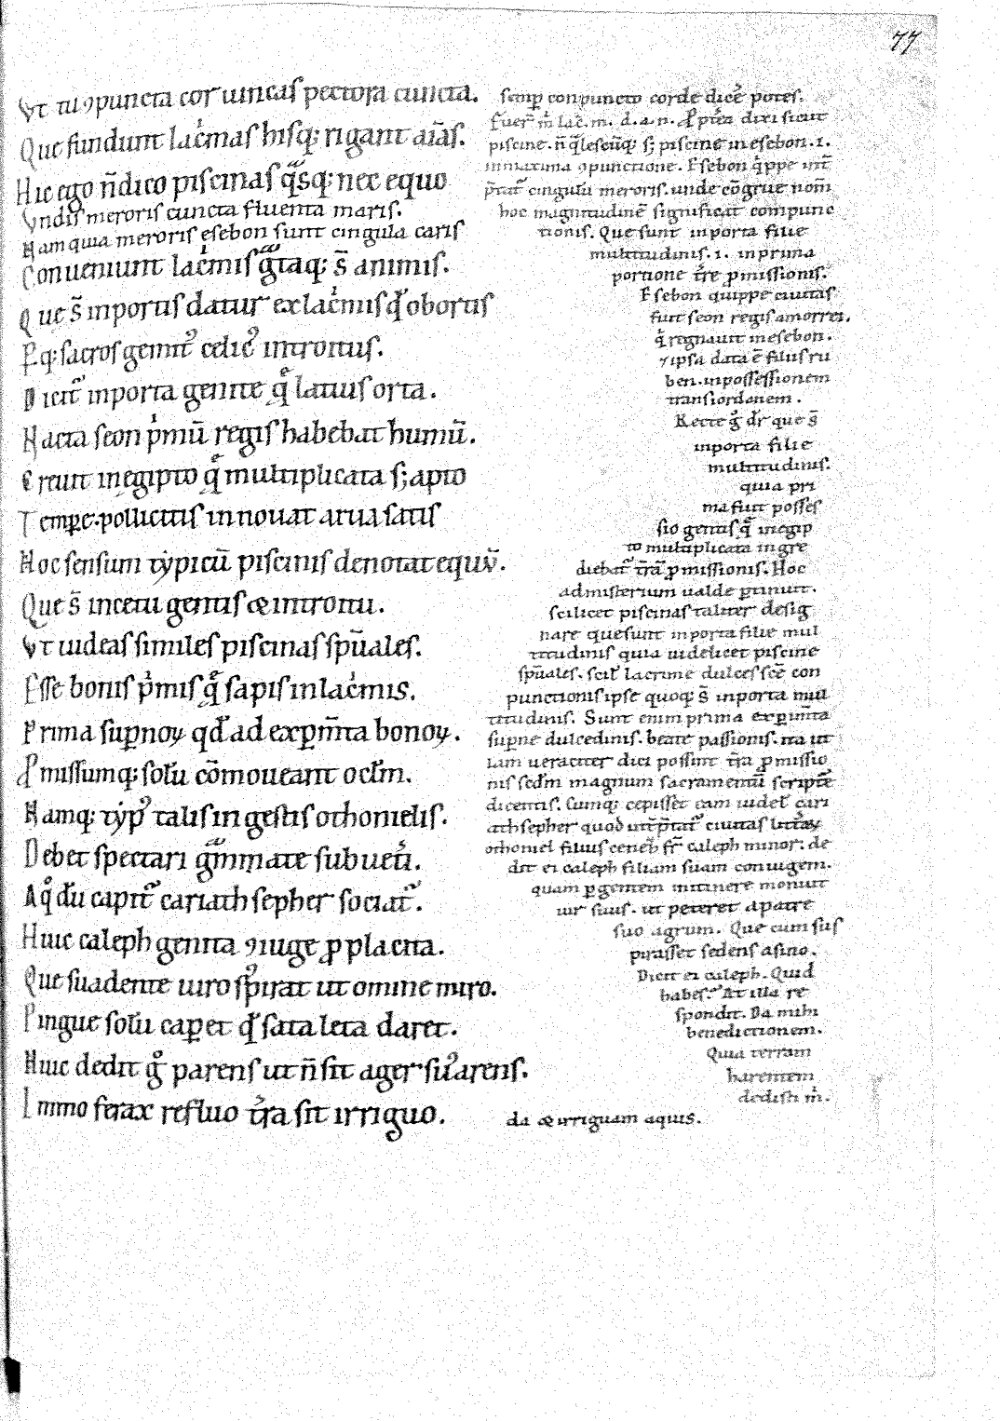 77
Vt tu ꝯpuncta cor uincas pectora cuncta.
Que fundunt lac̍mas hisq; rigant aīas.
Hic ego n̄ dico piscinas q̄sq; nec equo
Vndis meroris cuncta fluenta maris.
Nam quia meroris esebon sunt cingula caris
Conueniunt lac̍mis gr̄taq; s̄ animis.
Que s̄ inportis datur ex lac̍mis qd̄ obortis
Ꝑq; sacros gemit᷒ celic᷒ introitus.
Dicit᷑ inporta gente q̄ latius orta.
Nacta seon p̍mū regis habebat humū.
Creuit inegipto q̄ multiplicata s; apto
Temꝑe. pollicitis innouat arua satis
Hoc sensum typicū piscinis denotat equū.
Que s̄ incetu gentis & introitu.
Vt uideas similes piscinas sp̄uales.
Esse bonis p̍mis q̄ sapis inlac̍mis.
Prima suꝑnoꝝ qd̄ ad exꝑim̄ta bonoꝝ.
Ꝓmissumq; solū cōmoueant oclm̄.
Namq; typ᷒ talis in gestis othonielis.
Debet spectari gr̄mmate sub uet̍i.
A q̊ dū capit᷑ cariath sepher sociat᷑.
Huic caleph genita ꝯiuge ꝓ placita.
Que suadente uiro sp̍irat ut omine miro.
Pingue solū caꝑet qd̄ sata leta daret.
Huic dedit g̊ parens ut n̄ sit ager su᷒ arens.
Immo ferax refluo t̄ra sit irriguo.
semꝑ conpuncto corde dic̄e potes.
Fuer̄ m̍ lac̄. m. d. a. n. Ꝓpt̄ea dixi sicut
piscine. n̄ q̄lescūq; s; piscine inesebon. i.
inmaxima ꝯpunctione. Esebon q̍ppe int̄
p̄tat᷑ cingulū meroris. unde cōgrue nom̄
hoc magnitudinē significat compunc
tionis. Que sunt inporta filie
multitudinis. i. inprima
portione t̄re ꝓmissionis.
Esebon quippe ciuitas
fuit seon regis amorrei.
q̍ regnauit inesebon.
⁊ ipsa data ē filiis ru
ben. inpossessionem
transiordanem.
Recte g̊ dr̄ que s̄
inporta filie
multitudinis.
quia pri
ma fuit posses
sio gentis q̄ inegip
to multiplicata ingre
diebat᷑ t̄rā ꝓmissionis. Hoc
admisterium ualde ꝑtinuit.
scilicet piscinas taliter desig
nare que sunt inporta filie mul
titudinis quia uidelicet piscine
sp̄uales. scil̄ lacrime dulces sc̄e con
punctionis ipse quoq; s̄ inporta mul
titudinis. Sunt enim prima exꝑim̄ta
suꝑne dulcedinis. beate passionis. ita ut
iam ueraciter dici possint t̄ra ꝓmissio
nis sedm̄ magnum sacramentū scriptē
dicentis. Cumq; cepisset eam iudet̄ cari
ath sepher quod int̄p̄tat᷑ ciuitas litt̄aꝝ
othoniel filius cenez fr̄ caleph minor: de
dit ei caleph filiam suam coniugem.
quam ꝑgentem initinere monuit
uir suus. ut peteret apatre
suo agrum. Que cum sus
pirasset sedens asino.
Dicit ei caleph. Quid
habes? At illa re
spondit. Da mihi
benedictionem.
Quia terram
harentem
dedisti m̍.
da & irriguam aquis.